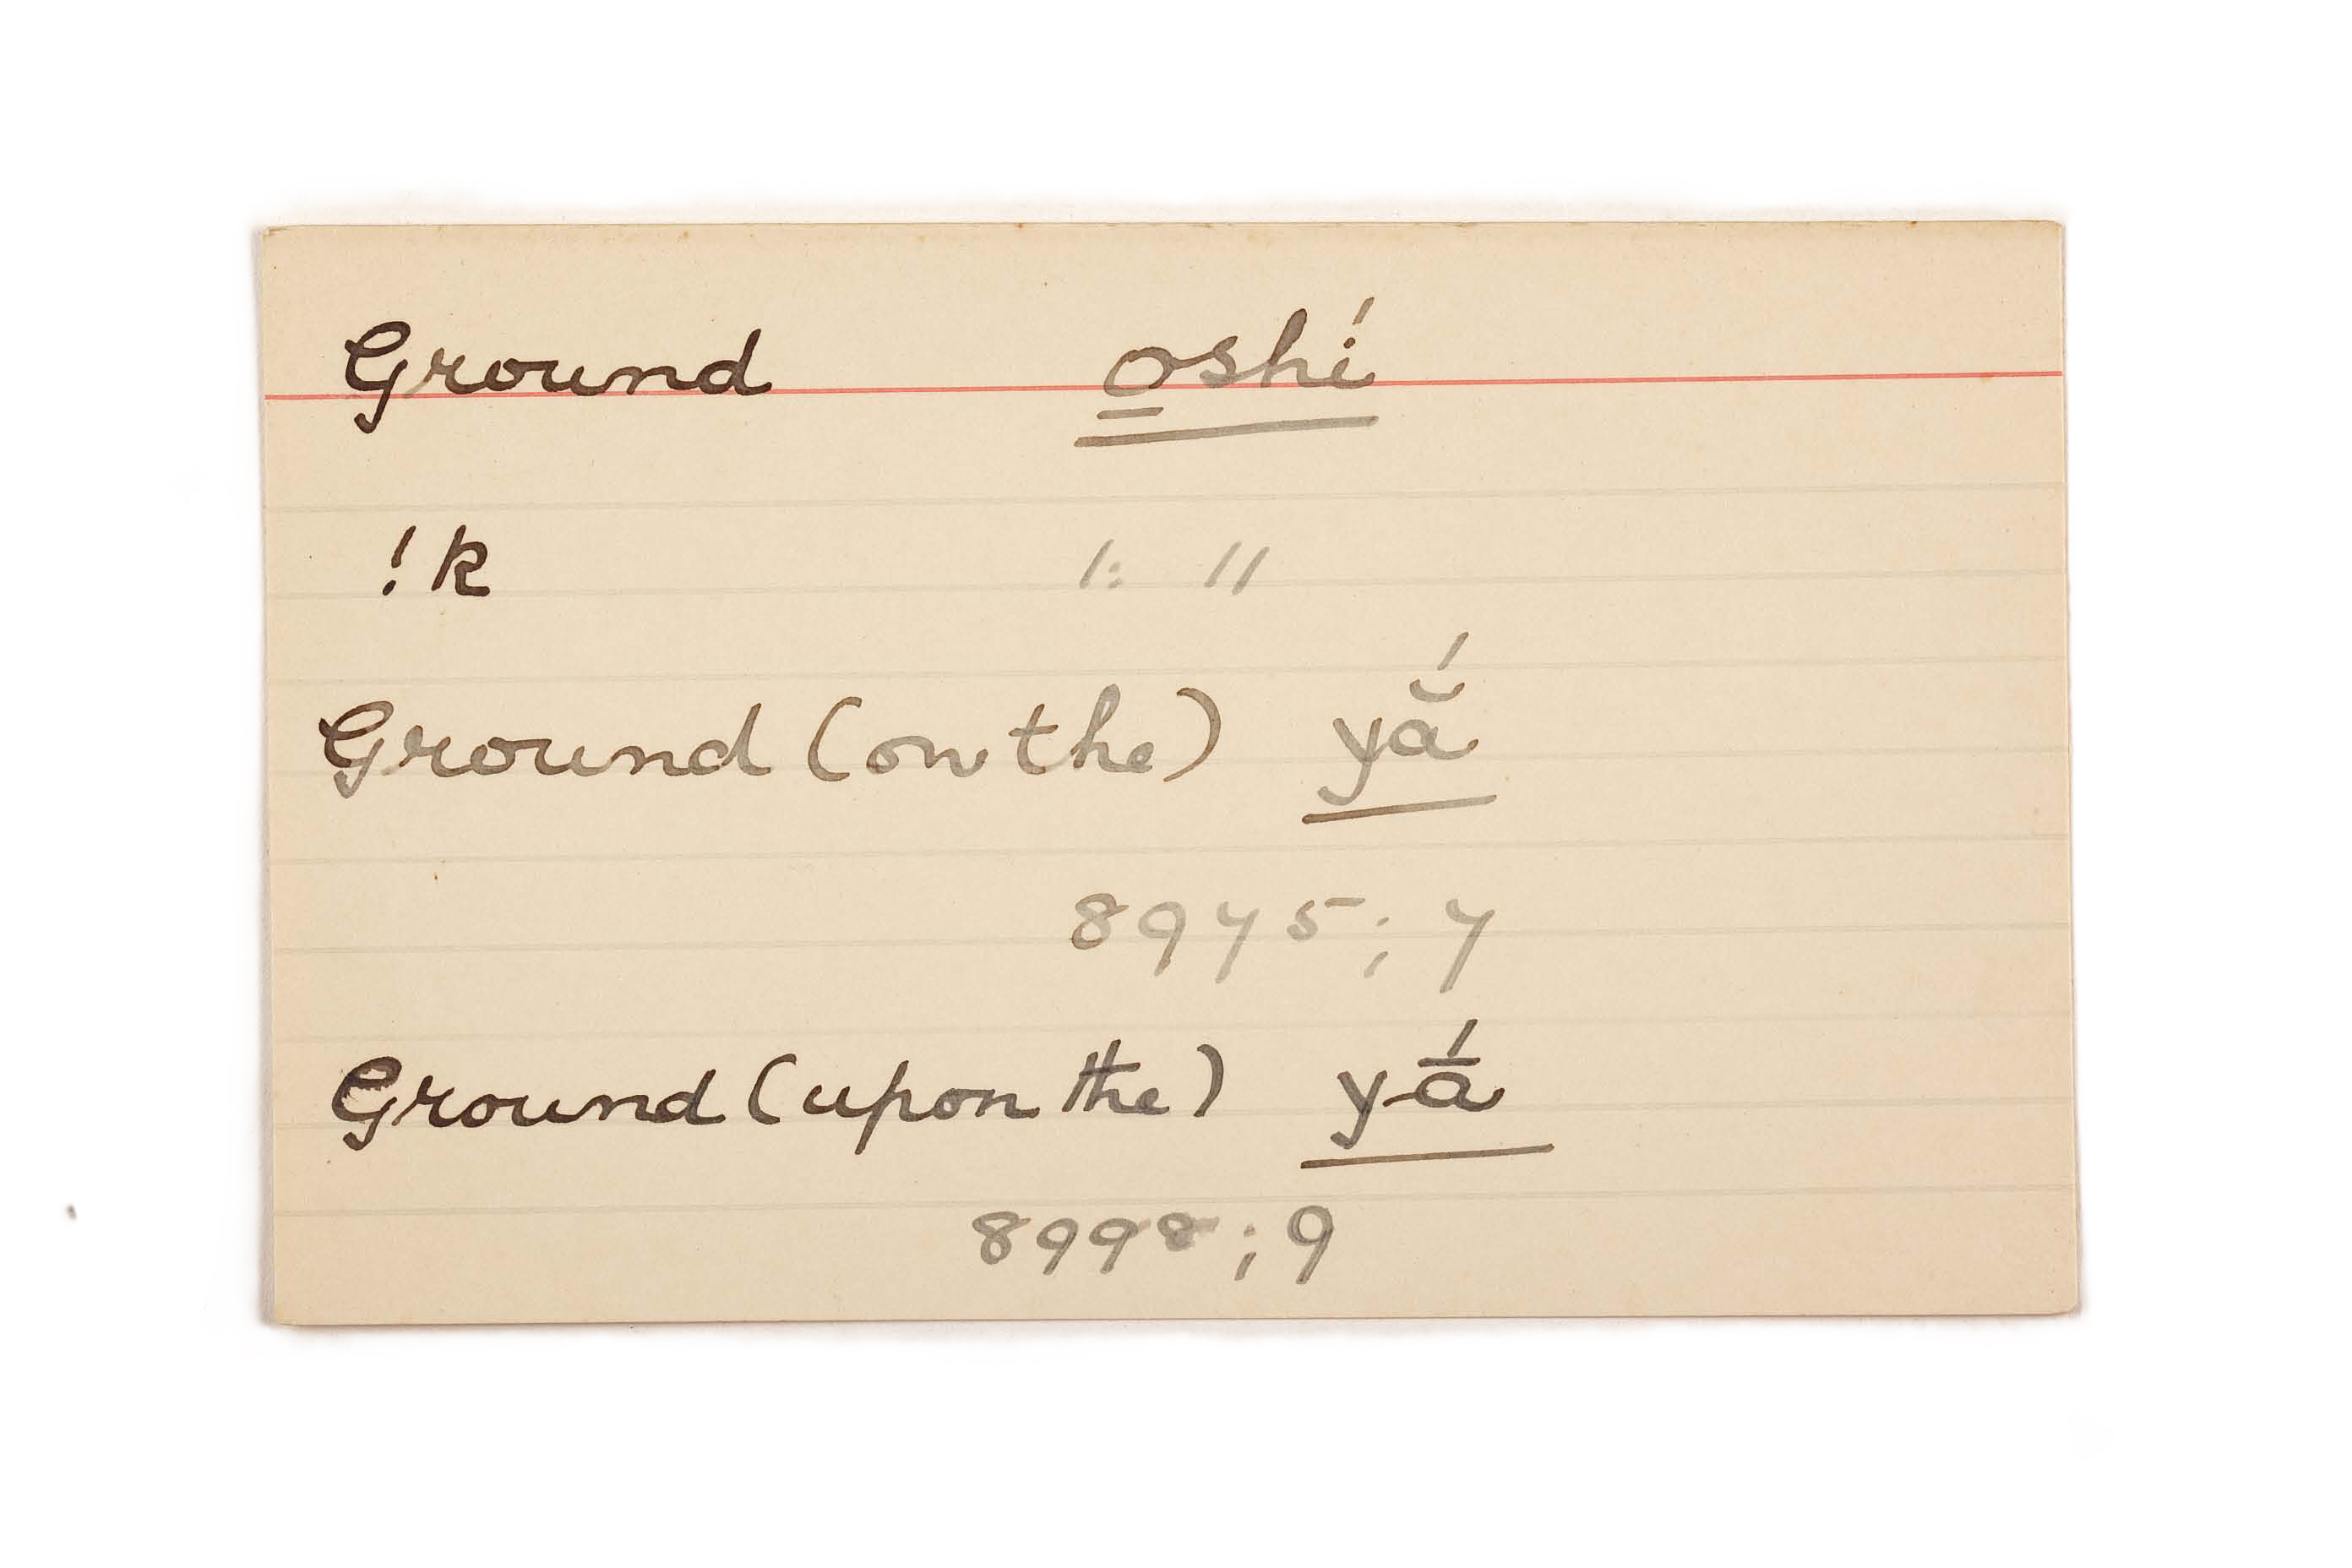 Ground o̱shí
!k 1: 11
Ground (on the) yắ
8975; 7
Ground (upon the) yā́
8998; 9